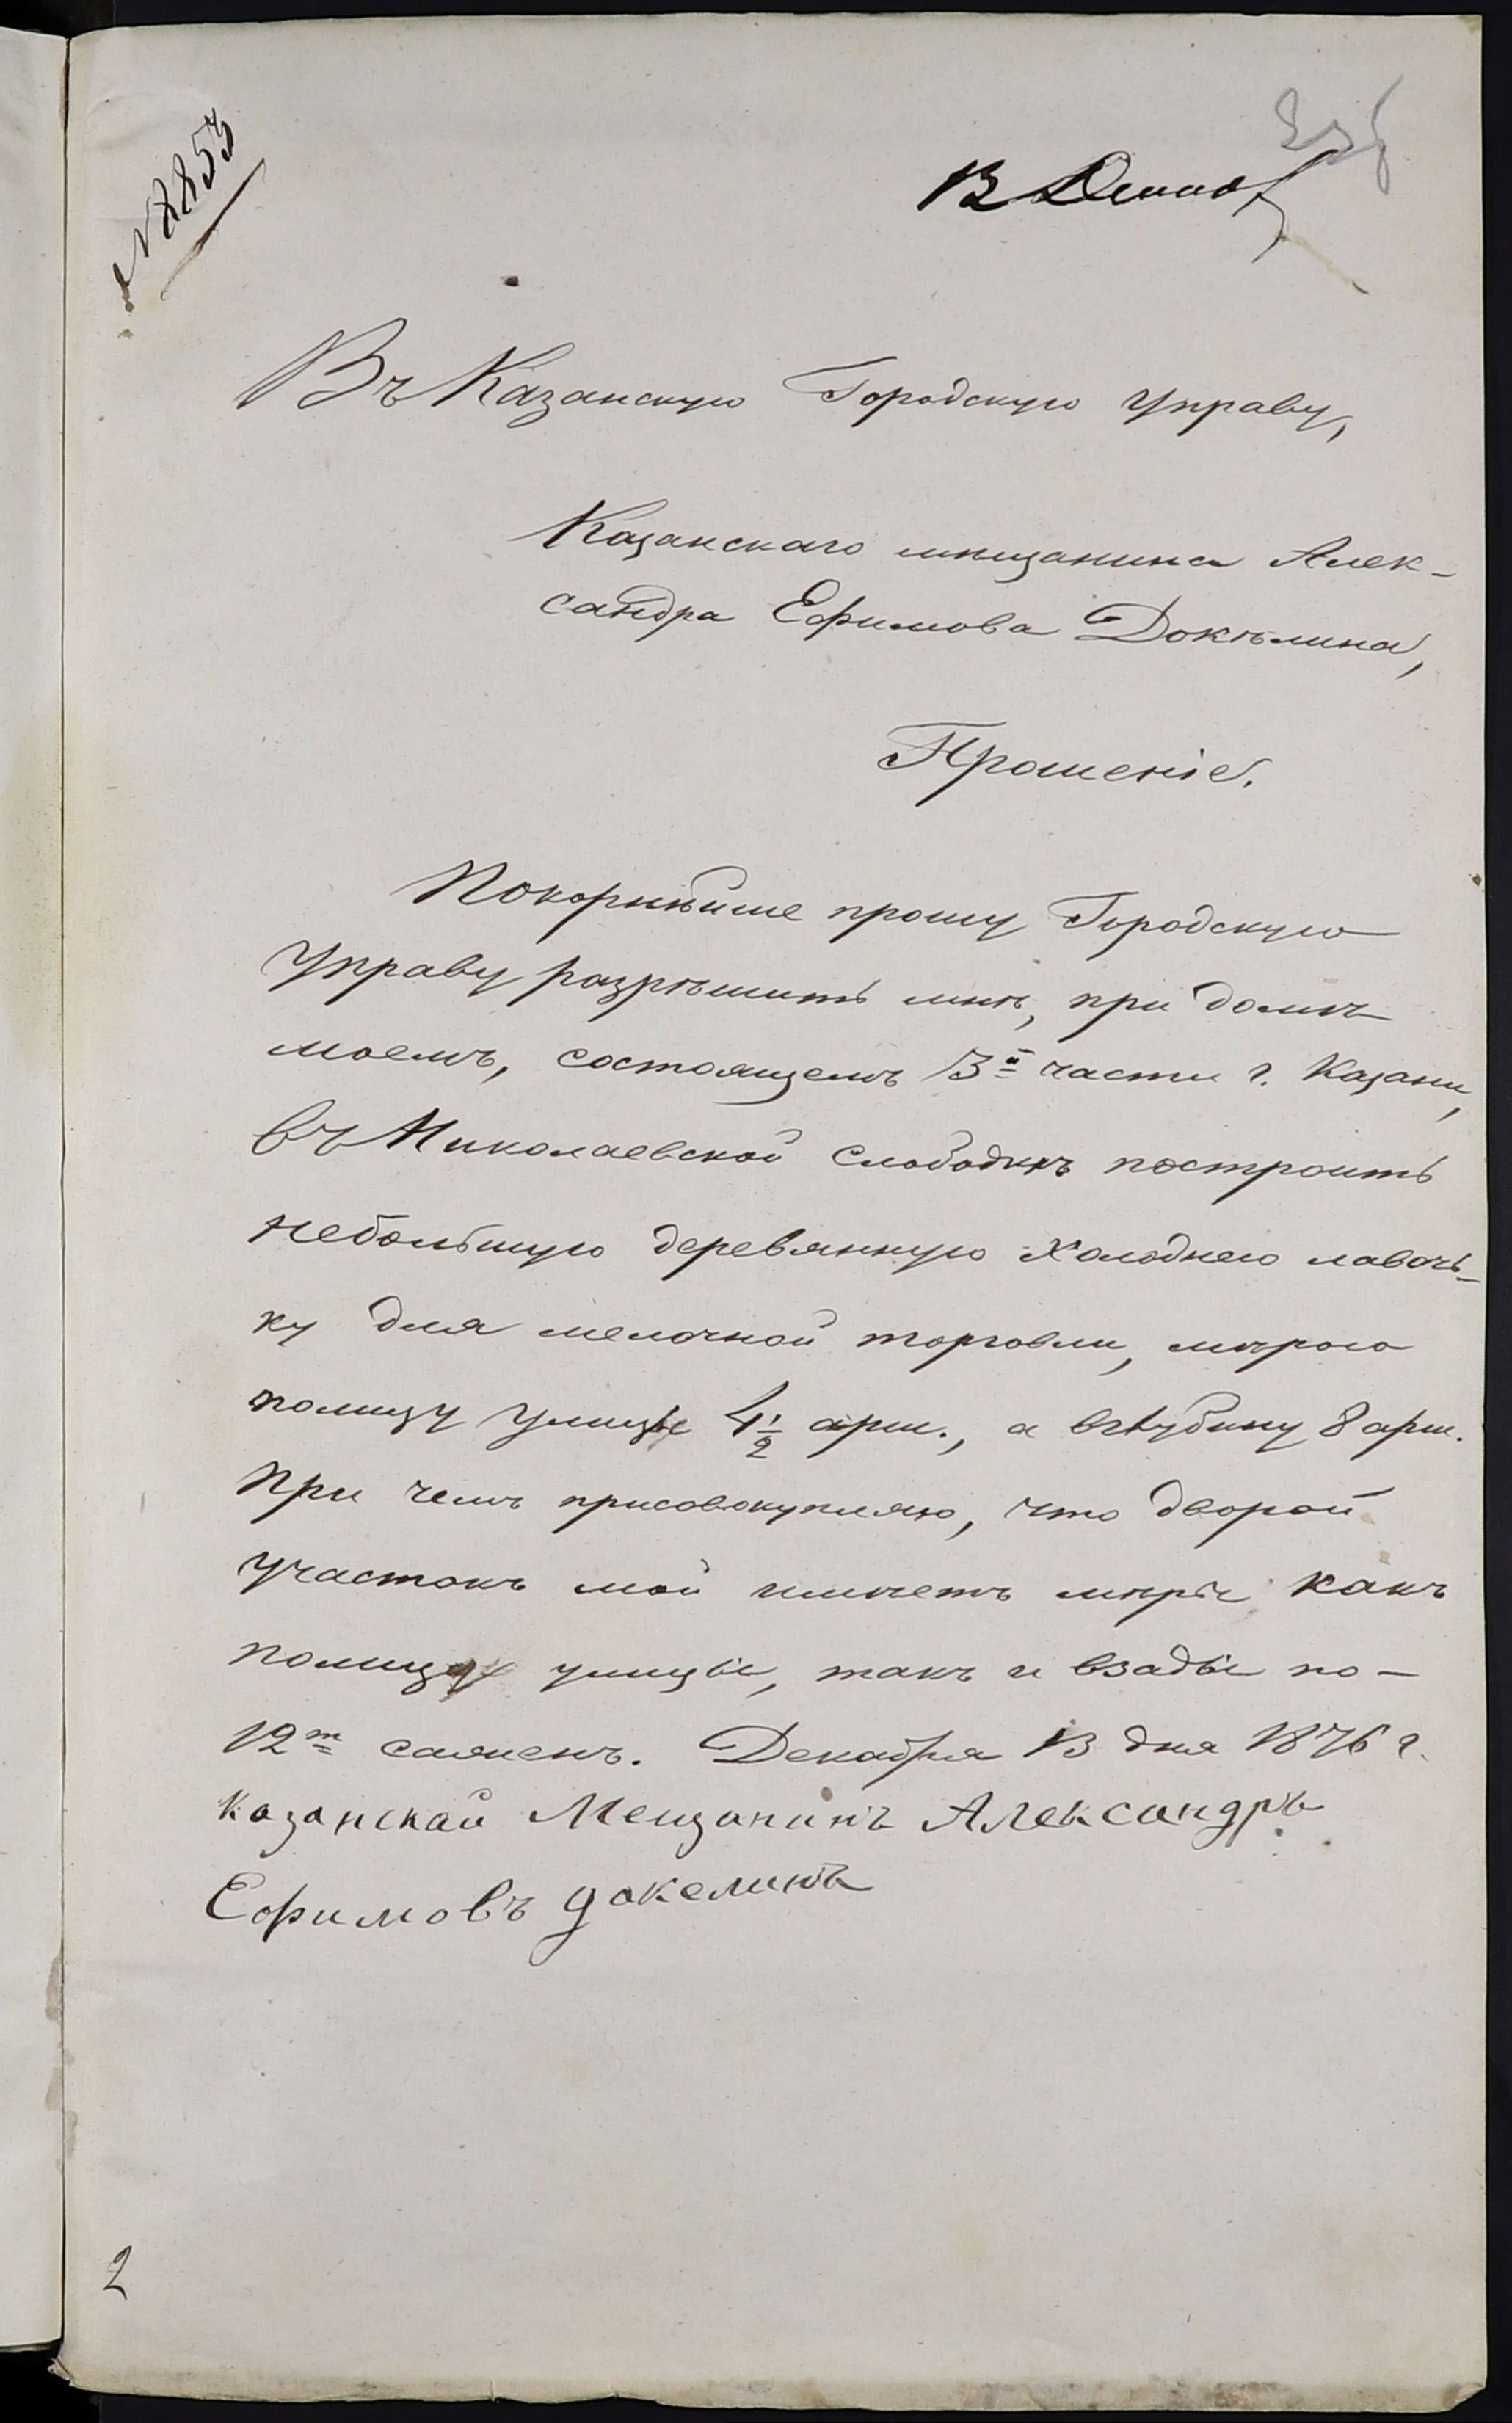 № 8853
13 Декаб
Въ Казанскую Городскую Управу,
Казанскаго мѣщанина Алек-
сандра Ефимова Докѣлина,
Прошеніе.
Покорнѣйше прошу Городскую
Управу разрѣшить мнѣ, при домѣ
моемъ, состоящемъ 3й части г. Казани,
въ Николаевской слободкѣ построить
небольшую деревянную холоднею лавочь-
ку для мелочной торговли, мѣрою
полицу улицы 4 1/2 арш., а вглубину 8 арш.
При чемъ присовокупляю, что дворой
участокъ мой имѣетъ мѣры какъ
полицу улицы, такъ и взады по-
12ть саженъ. Декабря 13 дня 1876 г.
казанскай Мещанинъ Александръ
Ефимовъ докелинъ
2